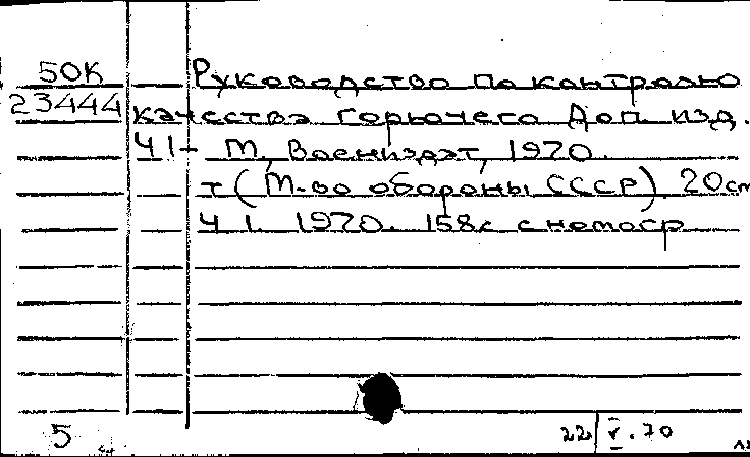 50К
23444
Руководство по контролю
качества горючего Доп изд.
Ч 1- М, Воениздат, 1970.
т (М-во обороны СССР) 20 cm
Ч 1. 1970. 158с с номогр
5
22/V.70